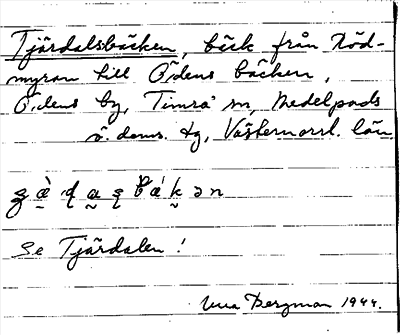 Tjärdalsbäcken, bäck från Röd-
myran till Ödens bäcken,
Ödens by, Timrå sn, Medelpads
ö. doms. tg, Västernorrl. län.
se Tjärdalen!
Bergman 1944.